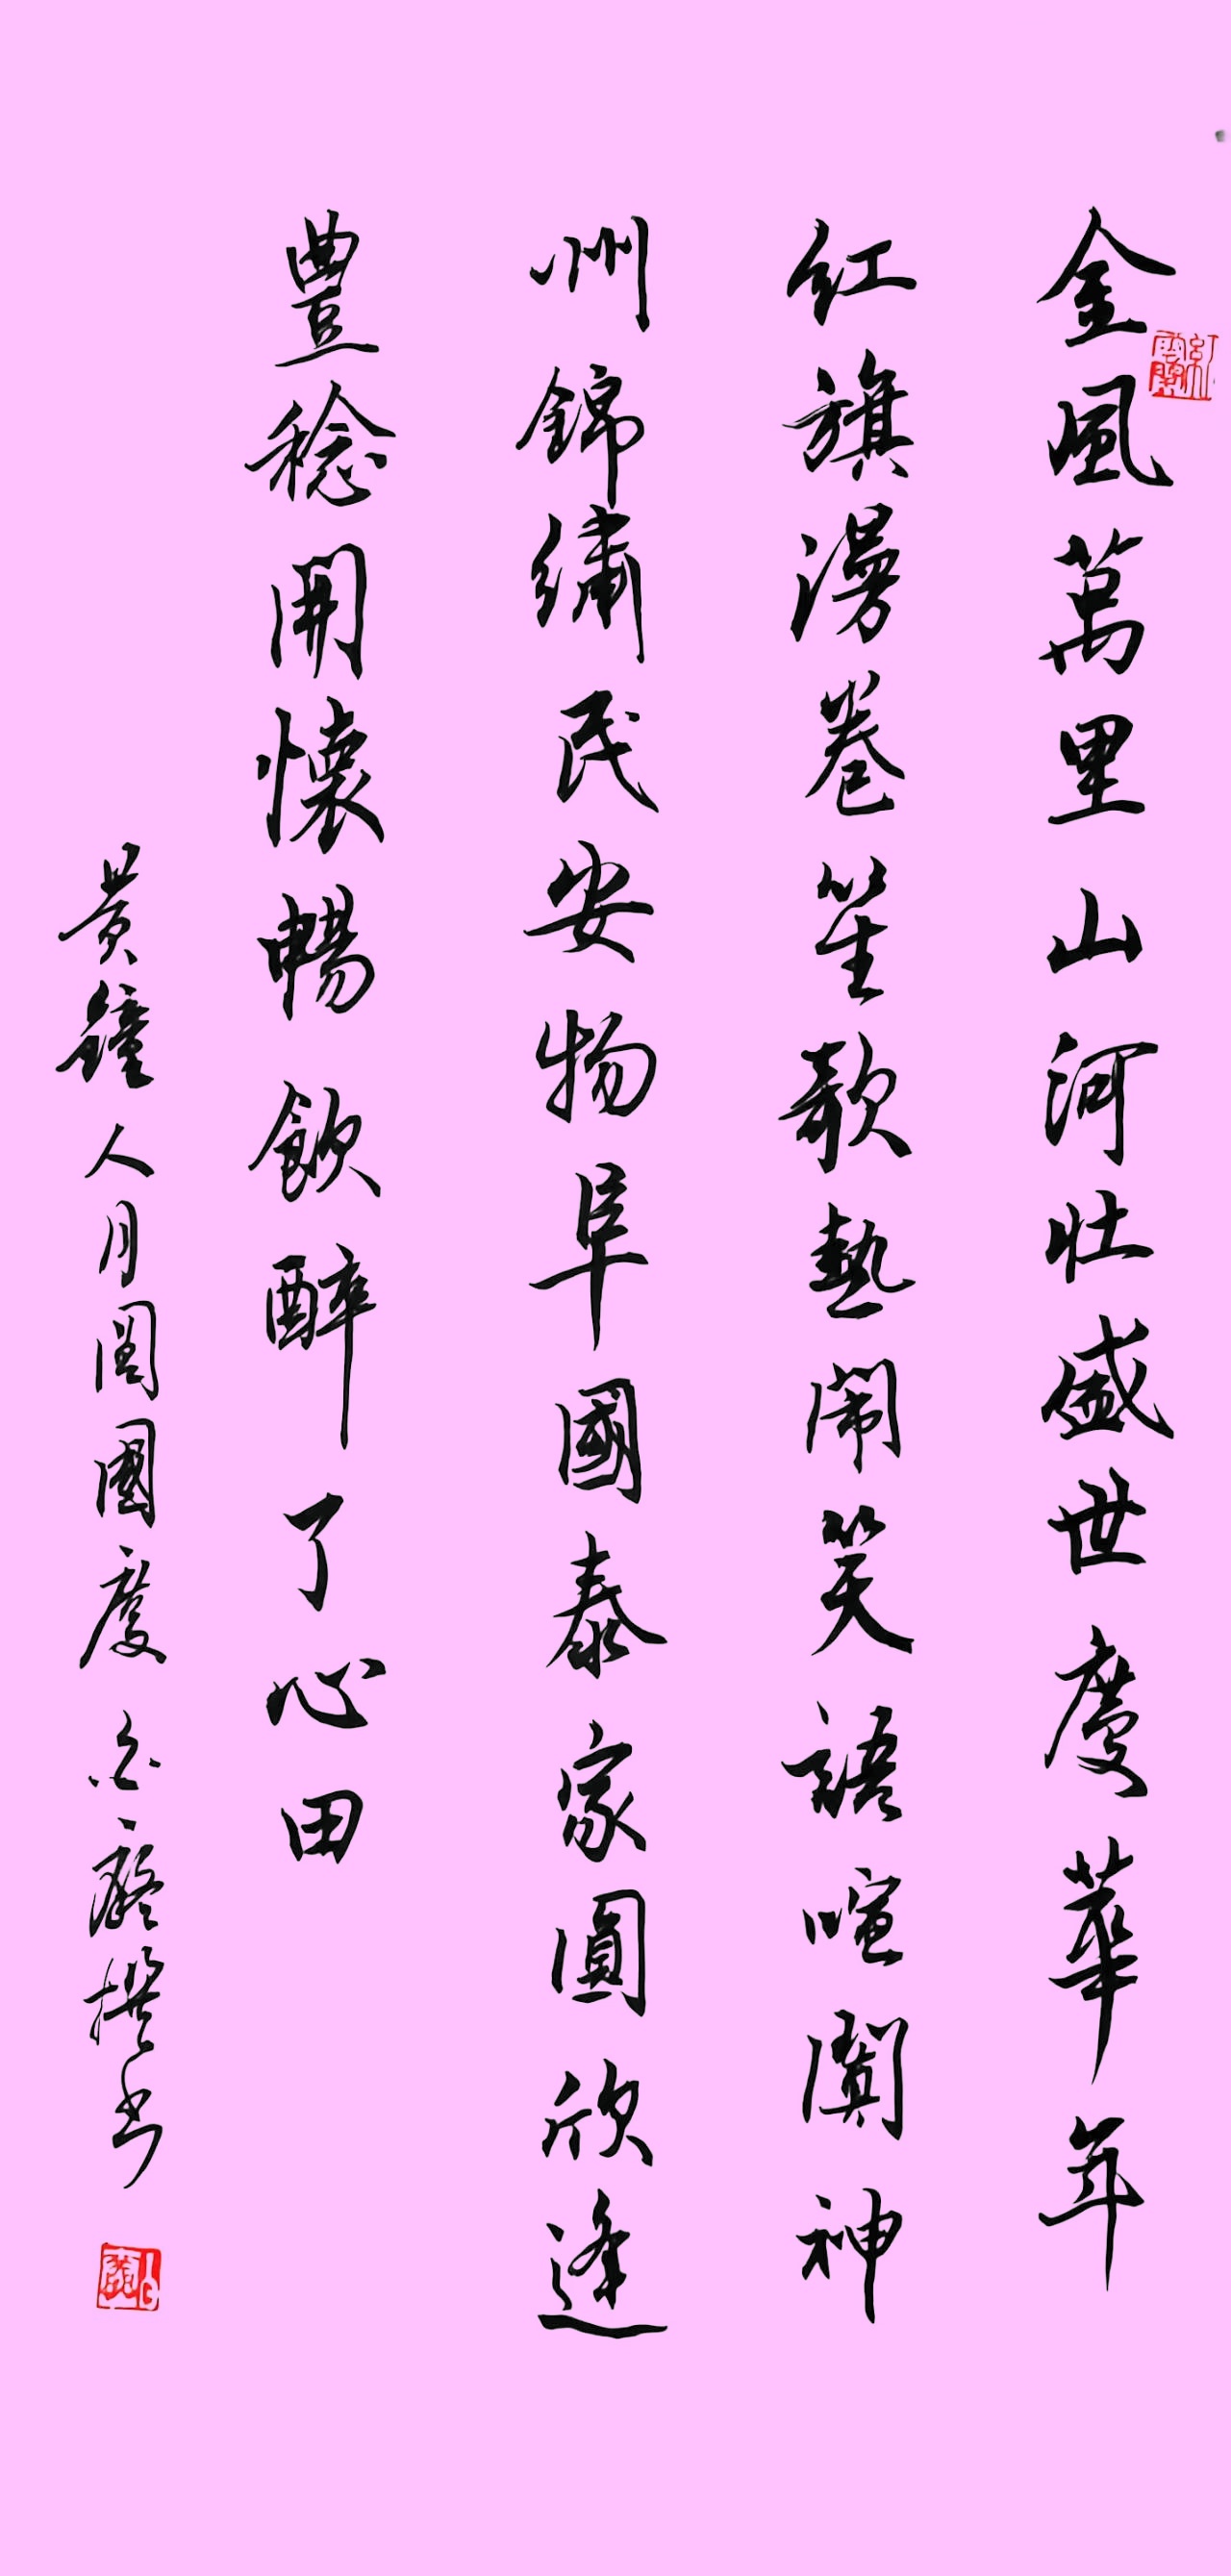 金風萬里山河壯盛世慶華年
紅旗漫卷笙歌熱鬧笑語喧闐神
州錦繡民安物阜國泰家圓欣逢
豊稔開懷暢飲醉了心田
黄鐘人月圓國慶 白廳撰书